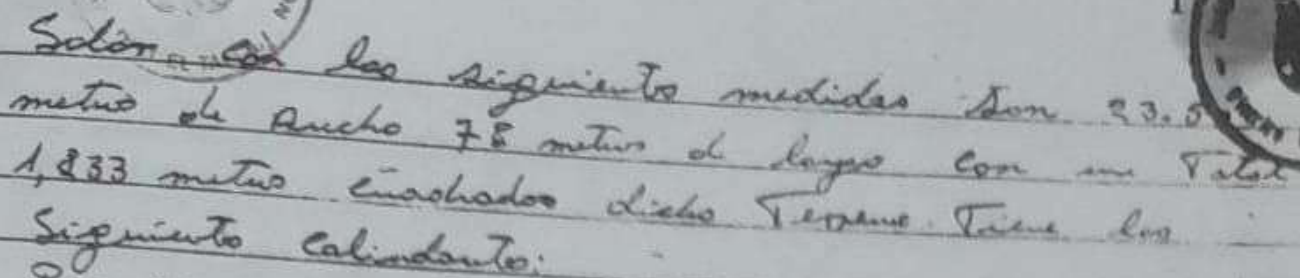 Solar con las siguiento medidas son 23.5
metros de Ancho 78 metros de largo con un Total
1,833 metros cuadrados dicho Terreno Tiene los
Siguiento Calindante: